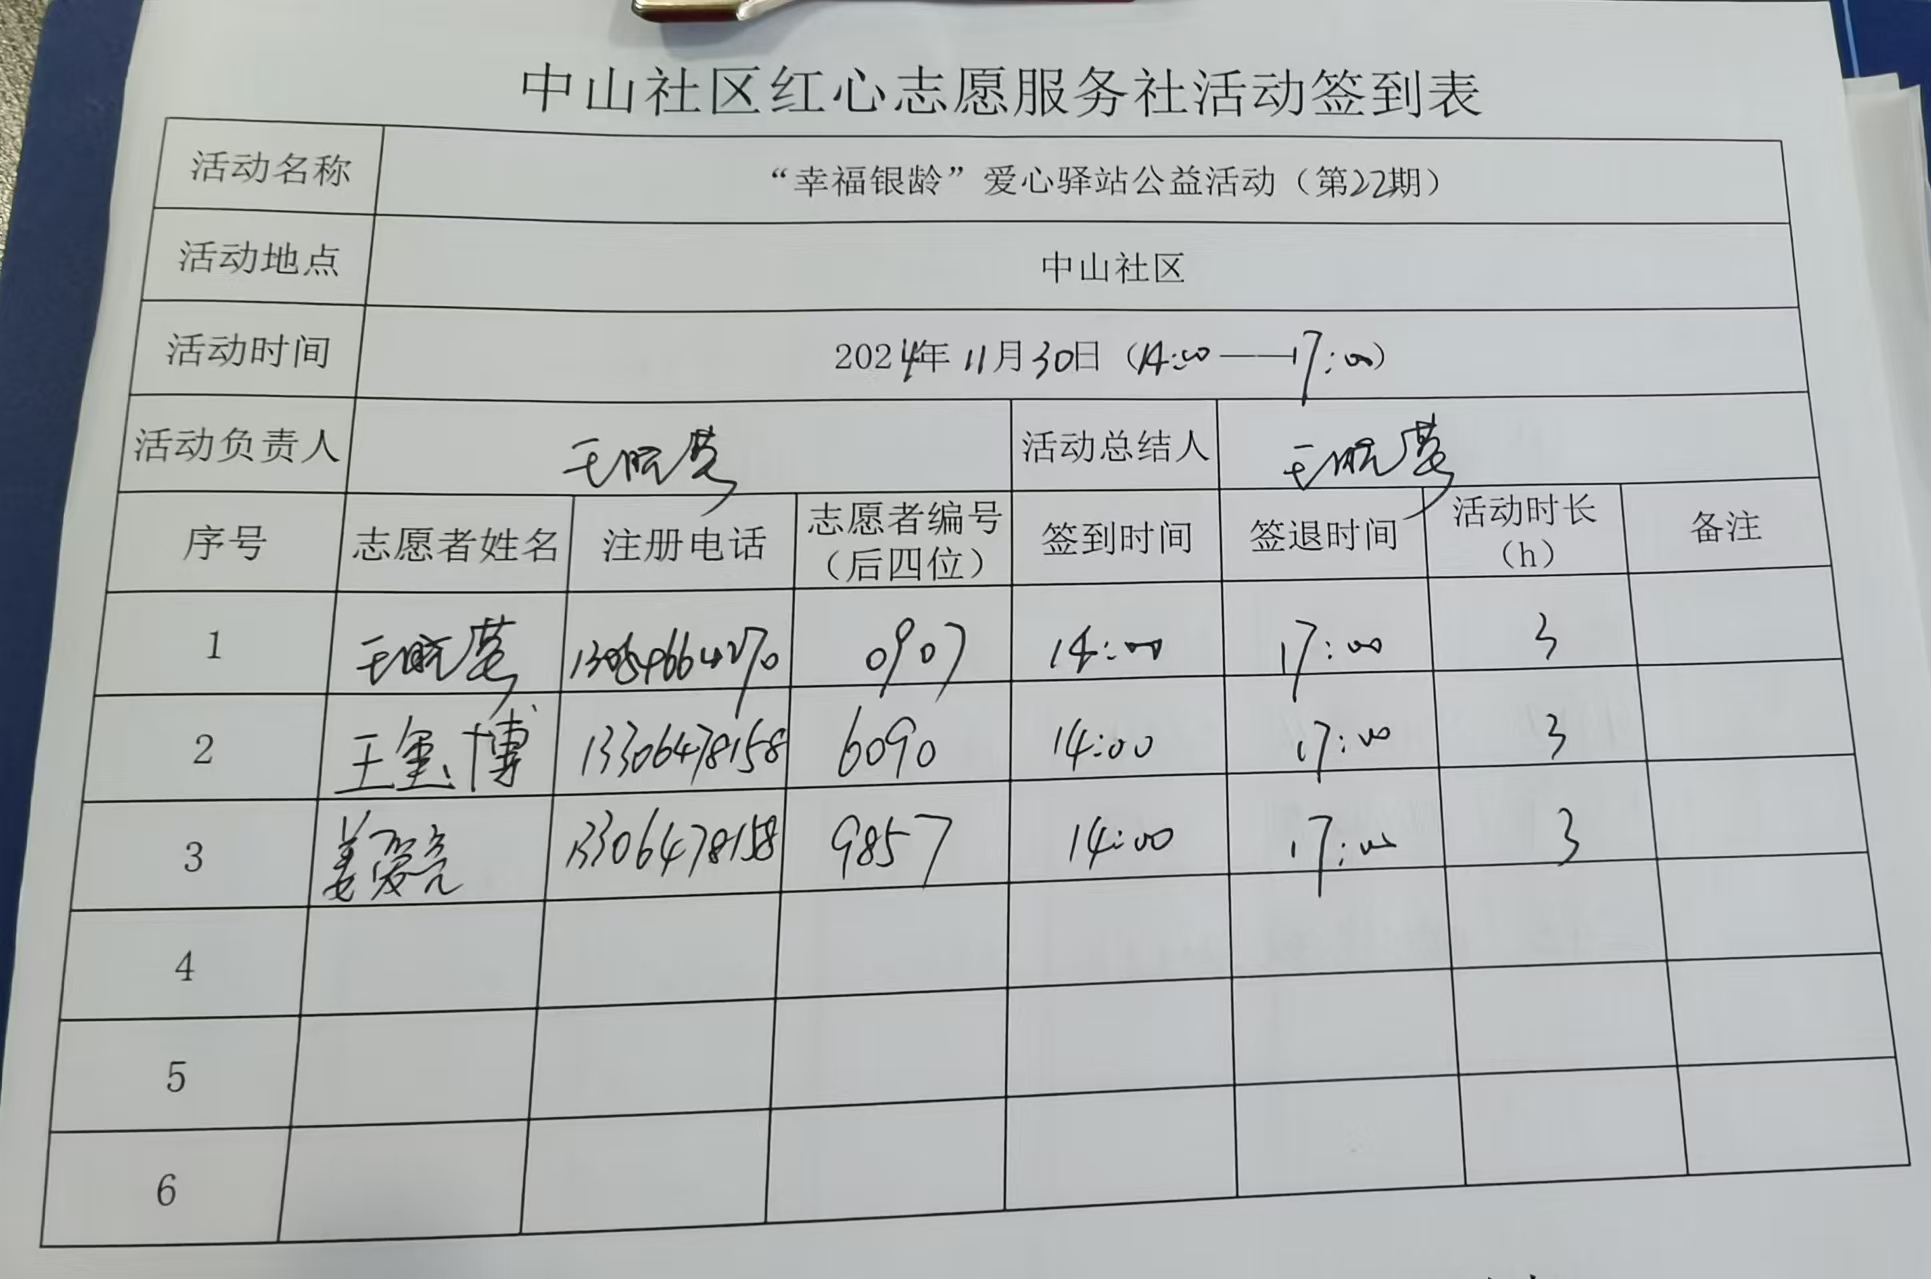 中山社区红心志愿服务社活动签到表
活动名称 “幸福银龄”爱心驿站公益活动（第22期）
活动地点 中山社区
活动时间 2024年11月30日（14:00——17:00）
活动负责人 王晓燕 活动总结人 王晓燕
序号 志愿者姓名 注册电话 志愿者编号（后四位） 签到时间 签退时间 活动时长（h） 备注
1 王晓燕 0907 14:00 17:00 3
2 王玺博 13306478158 6090 14:00 17:00 3
3 姜爱亮 13306478158 9857 14:00 17:00 3
4
5
6